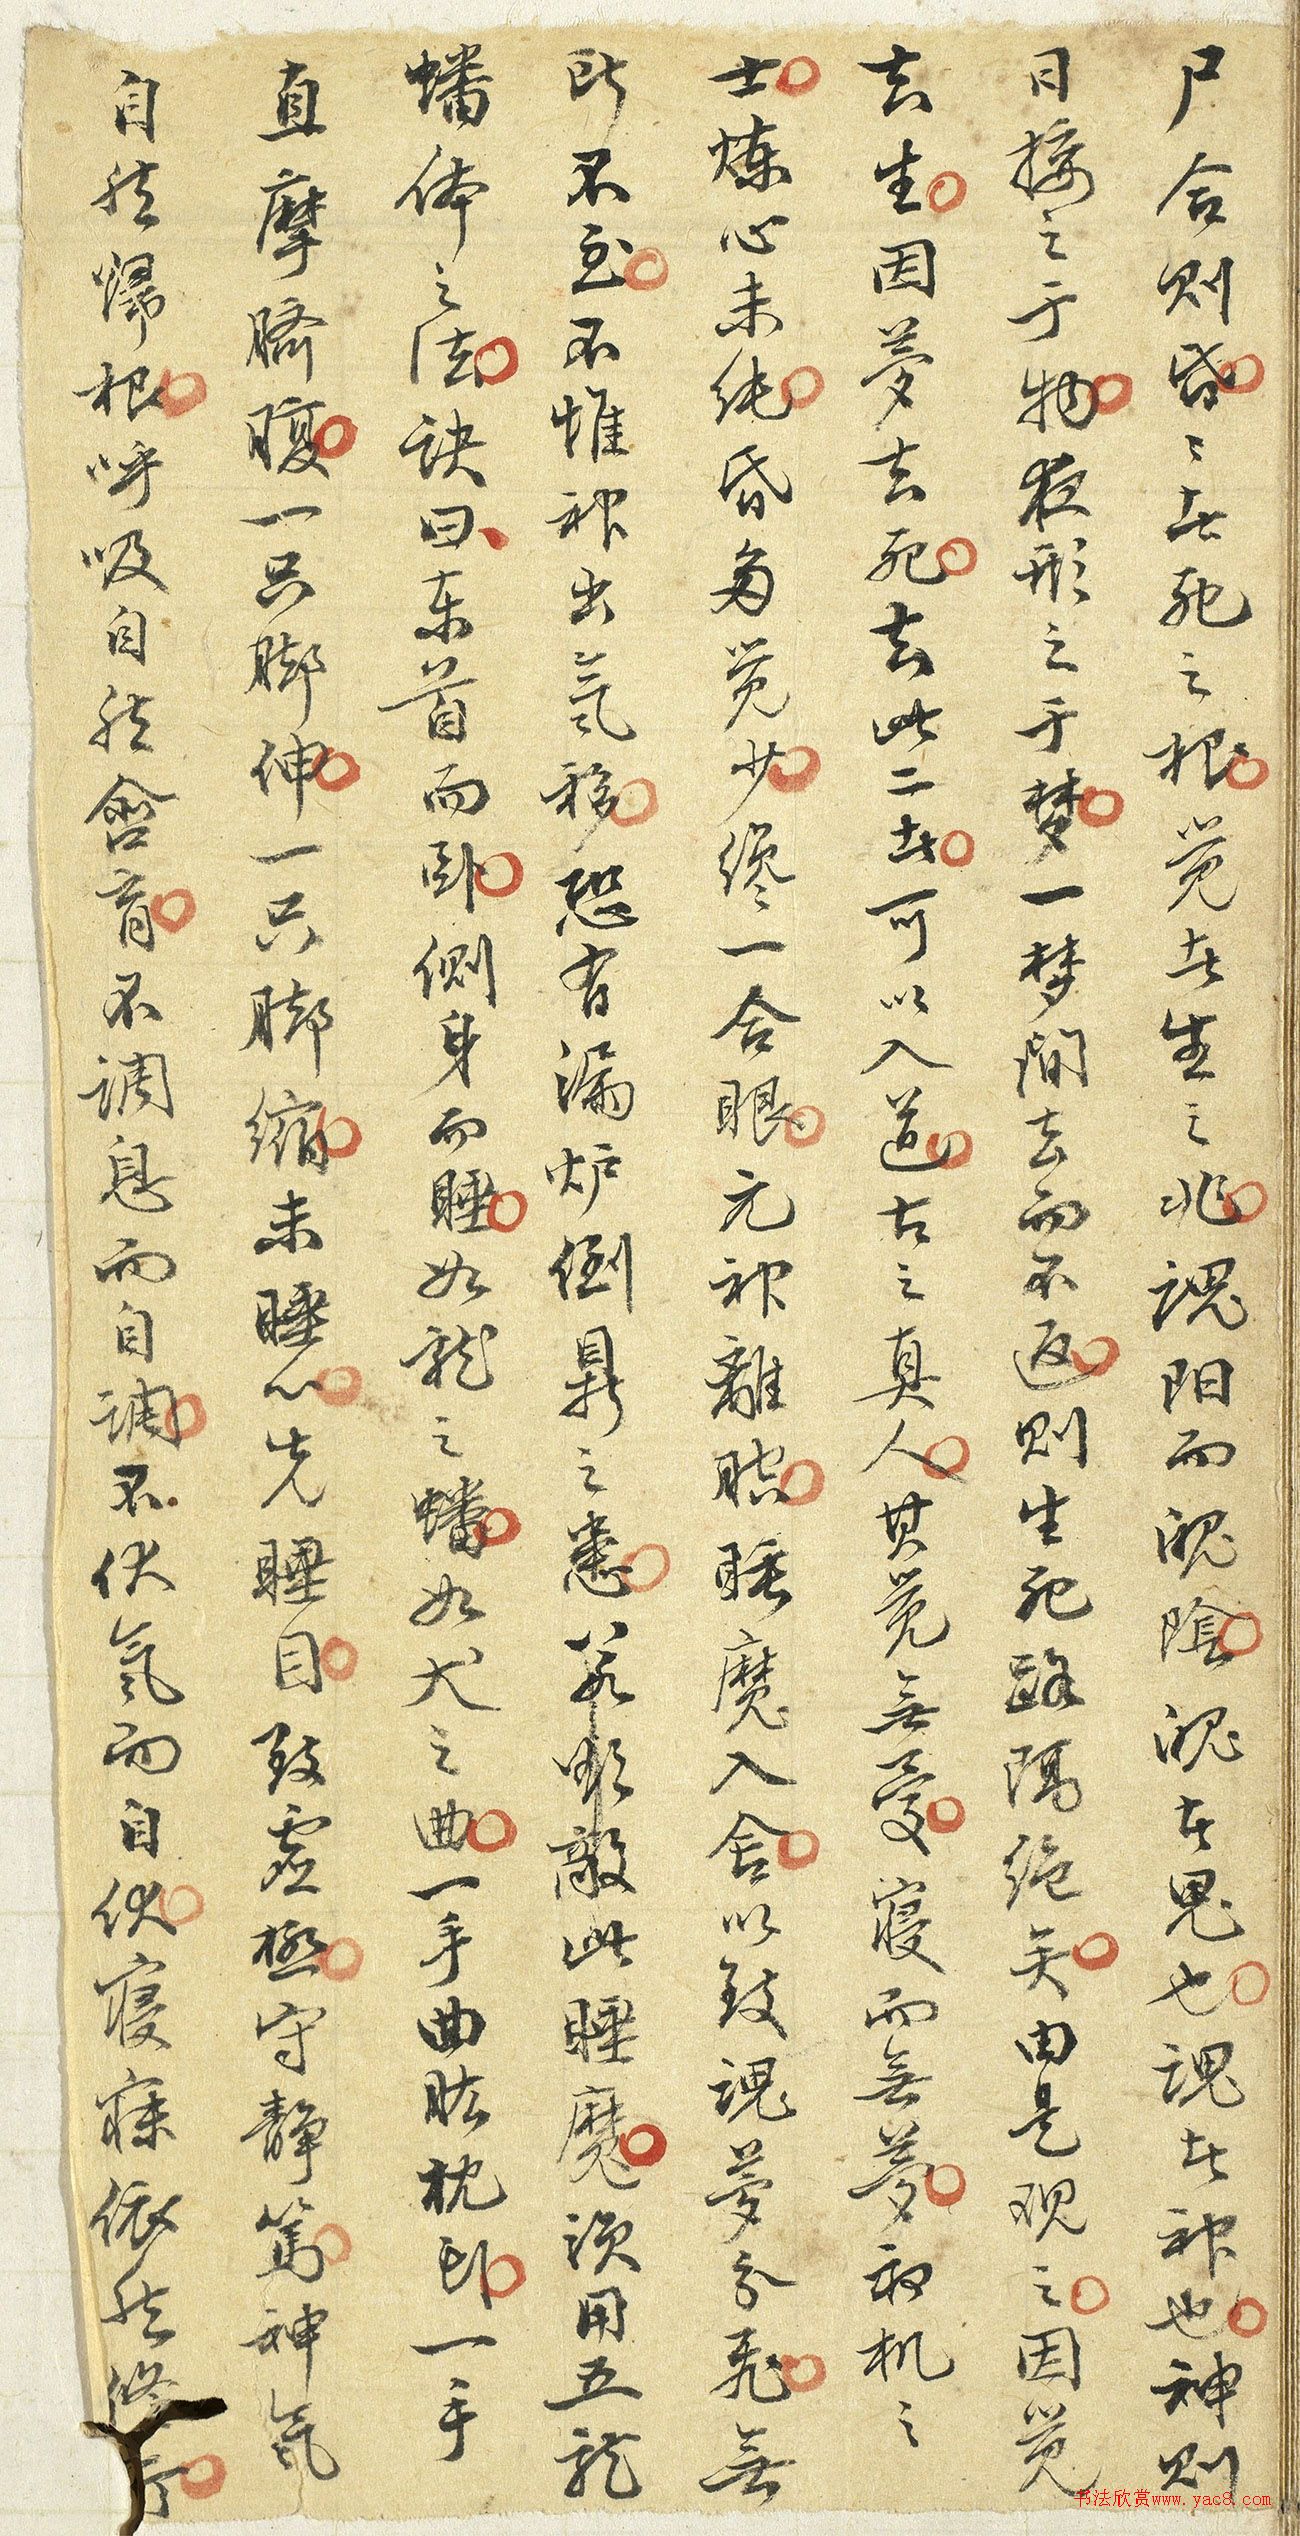 尸合则昏昏者死之根觉者生之兆魂阳而魄陰魄者鬼也魂者神也神则
日接之于物夜形之于梦一梦间去而不返则生死路隔绝矣由是观之因觉
去生因夢去死去此二者可以入道古之真人其觉無憂寝而無夢初机之
士炼心未纯昏多觉少纔一合眼元神離腔睡魔入舍以致魂夢分飛無
所不至不惟神出氣移恐有漏炉倒鼎之患若欲敵此睡魔須用五龍
蟠体之法訣曰东首而卧侧身而睡如龍之蟠如犬之曲一手曲肱枕卧一手
直摩臍腹一只脚伸一只脚缩未睡心先睡目致虚極守静篤神氣
自然歸根呼吸自然含育不调息而自调不伏氣而自伏寝寐依然修行
书法欣赏www.yac8.com